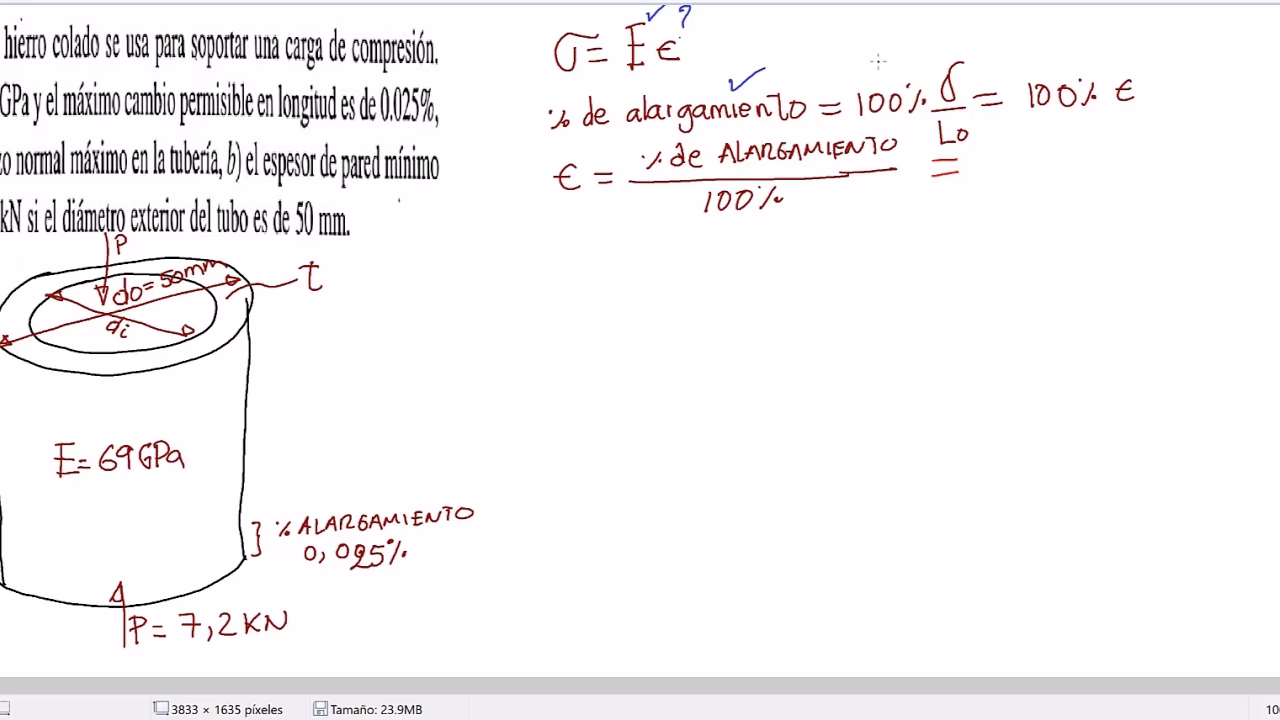 hierro colado se usa para soportar una carga de compresión.
GPa y el máximo cambio permisible en longitud es de 0.025%,
zo normal máximo en la tubería, b) el espesor de pared mínimo
kN si el diámetro exterior del tubo es de 50 mm.
σ = E ε ?
% de alargamiento = 100% δ/Lo = 100% ε
ε = % de ALARGAMIENTO / 100% =
P
do = 50mm
t
di
E = 69 GPa
% ALARGAMIENTO
0,025%
P = 7,2 KN
3833 × 1635 píxeles Tamaño: 23.9MB 10